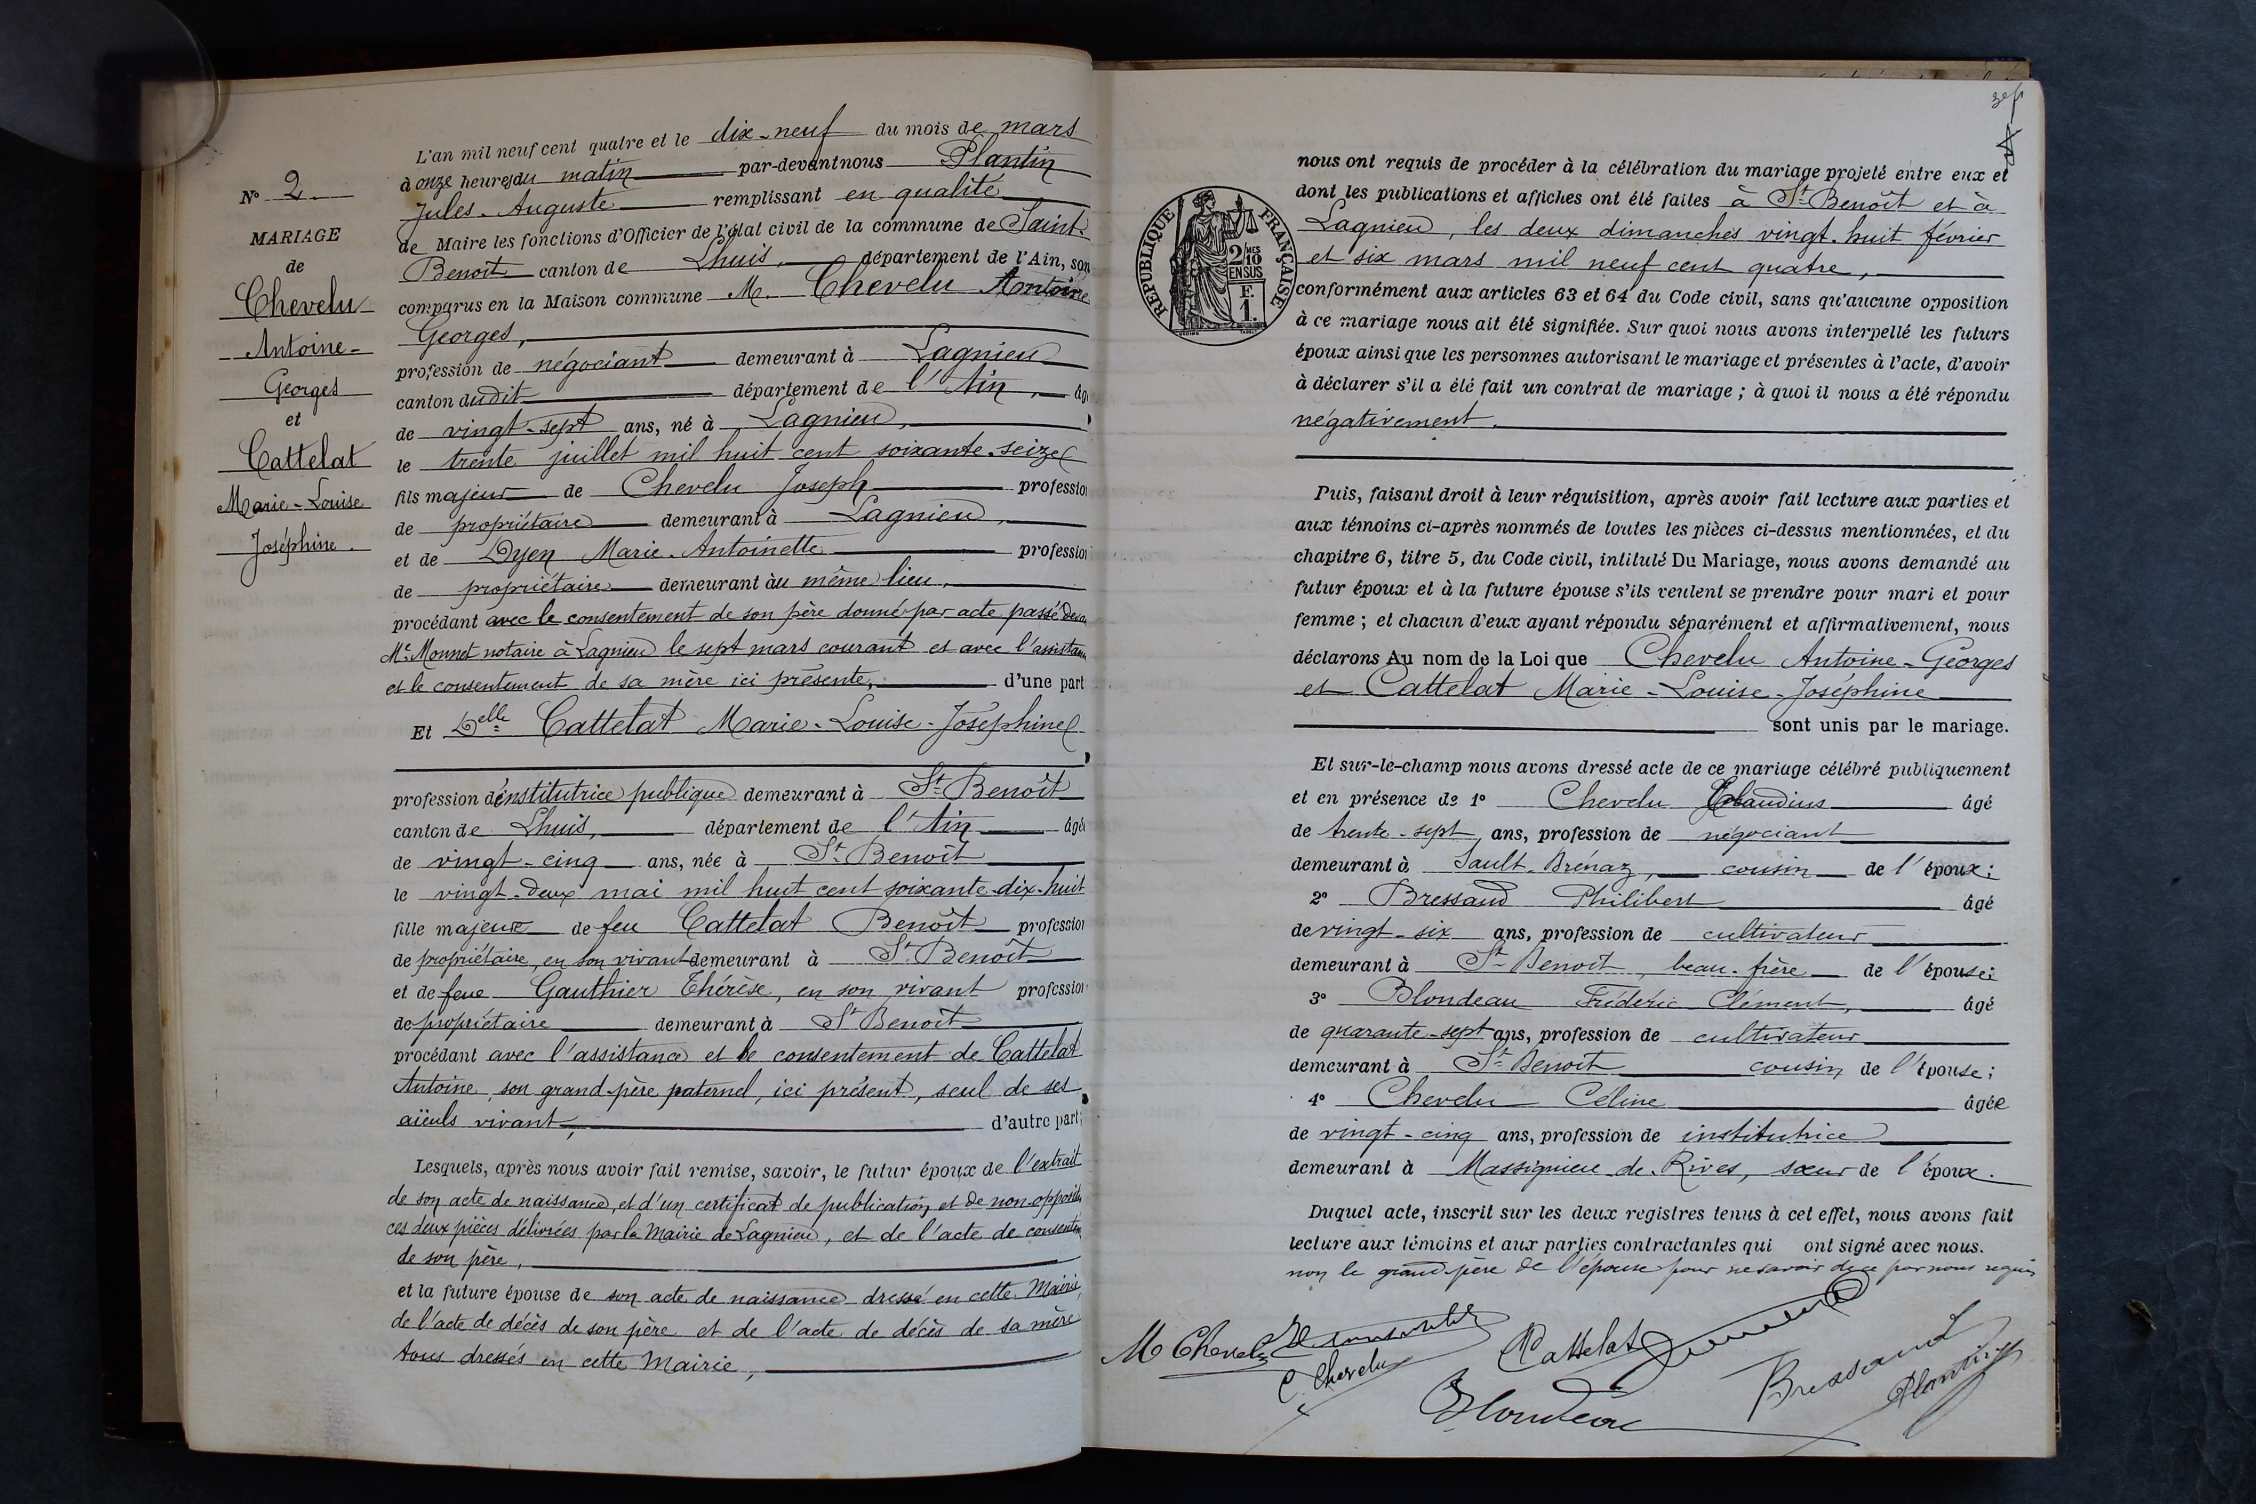 N° 2
MARIAGE
de
Chevelu
Antoine-
Georges
et
Cattelat
Marie-Louise
Joséphine.
L'an mil neuf cent quatre et le dix-neuf du mois de mars
à onze heures du matin par-devant nous Plantin
Jules-Auguste remplissant en qualité
de Maire les fonctions d'Officier de l'état civil de la commune de Saint-
Benoît canton de Lhuis, département de l'Ain, son
comparus en la Maison commune M. Chevelu Antoine
Georges,
profession de négociant demeurant à Lagnieu
canton dudit département de l'Ain, âgé
de vingt-sept ans, né à Lagnieu,
le trente juillet mil huit cent soixante-seize
fils majeur de Chevelu Joseph profession
de propriétaire demeurant à Lagnieu,
et de Dyen Marie-Antoinette profession
de propriétaire demeurant au même lieu,
procédant avec le consentement de son père donné par acte passé devan
Me Monnet notaire à Lagnieu le sept mars courant et avec l'assistan
et le consentement de sa mère ici présente, d'une part
Et Delle Cattelat Marie-Louise-Joséphine
profession d'institutrice publique demeurant à St Benoît
canton de Lhuis, département de l'Ain âgée
de vingt-cinq ans, née à St Benoît
le vingt-deux mai mil huit cent soixante-dix-huit
fille majeure de feu Cattelat Benoît profession
de propriétaire, en son vivant demeurant à St Benoît
et de feue Gauthier Thérèse, en son vivant profession
de propriétaire demeurant à St Benoît
procédant avec l'assistance et le consentement de Cattelat
Antoine, son grand-père paternel, ici présent, seul de ses
aïeuls vivant, d'autre part;
Lesquels, après nous avoir fait remise, savoir, le futur époux de l'extrait
de son acte de naissance, et d'un certificat de publication et de non-opposition
ces deux pièces délivrées par la Mairie de Lagnieu, et de l'acte de consentem
de son père,
et la future épouse de son acte de naissance dressé en cette Mairie,
de l'acte de décès de son père et de l'acte de décès de sa mère
tous dressés en cette Mairie,
RÉPUBLIQUE FRANÇAISE
2 MES
10
EN SUS
F.
1.
nous ont requis de procéder à la célébration du mariage projeté entre eux et
dont les publications et affiches ont été faites à St Benoît et à
Lagnieu, les deux dimanches vingt-huit février
et six mars mil neuf cent quatre,
conformément aux articles 63 et 64 du Code civil, sans qu'aucune opposition
à ce mariage nous ait été signifiée. Sur quoi nous avons interpellé les futurs
époux ainsi que les personnes autorisant le mariage et présentes à l'acte, d'avoir
à déclarer s'il a été fait un contrat de mariage ; à quoi il nous a été répondu
négativement.
Puis, faisant droit à leur réquisition, après avoir fait lecture aux parties et
aux témoins ci-après nommés de toutes les pièces ci-dessus mentionnées, et du
chapitre 6, titre 5, du Code civil, intitulé Du Mariage, nous avons demandé au
futur époux et à la future épouse s'ils veulent se prendre pour mari et pour
femme ; et chacun d'eux ayant répondu séparément et affirmativement, nous
déclarons Au nom de la Loi que Chevelu Antoine-Georges
et Cattelat Marie-Louise-Joséphine
sont unis par le mariage.
Et sur-le-champ nous avons dressé acte de ce mariage célébré publiquement
et en présence de 1° Chevelu Claudius âgé
de trente-sept ans, profession de négociant
demeurant à Sault-Brénaz, cousin de l'époux;
2° Bressand Philibert âgé
de vingt-six ans, profession de cultivateur
demeurant à St Benoît, beau-frère de l'épouse;
3° Blondeau Frédéric Clément, âgé
de quarante-sept ans, profession de cultivateur
demeurant à St Benoît cousin de l'épouse;
4° Chevelu Céline âgée
de vingt-cinq ans, profession de institutrice
demeurant à Massignieu-de-Rives, sœur de l'époux.
Duquel acte, inscrit sur les deux registres tenus à cet effet, nous avons fait
lecture aux témoins et aux parties contractantes qui ont signé avec nous.
non le grand-père de l'épouse pour ne savoir de ce par nous requis
M Chevelu
C. Chevelu
Cattelat
Blondeau
Bressand
Plantin